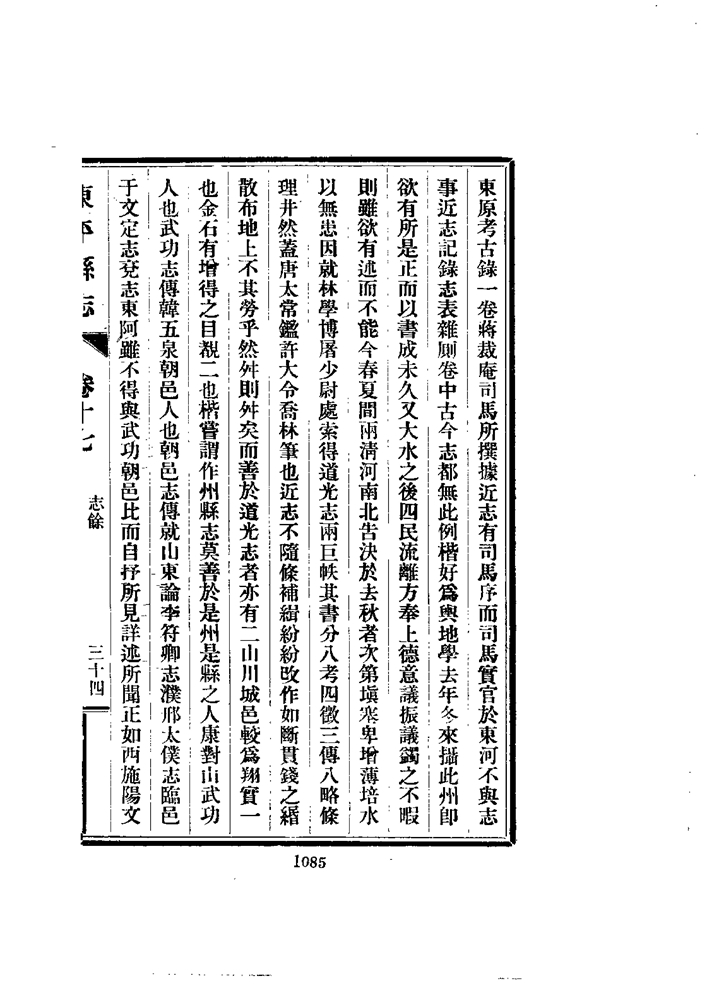 東原考古錄一卷蔣裁庵司馬所撰據近志有司馬序而司馬實官於東河不與志
事近志記錄志表雜厠卷中古今志都無此例楷好爲輿地學去年冬來攝此州卽
欲有所是正而以書成未久又大水之後四民流離方奉上德意議振議蠲之不暇
則雖欲有述而不能今春夏間兩淸河南北告決於去秋者次第塡寨卑增薄培水
以無患因就林學博屠少尉處索得道光志兩巨帙其書分八考四徵三傳八略條
理井然蓋唐太常鑑許大令喬林筆也近志不隨條補緝紛紛改作如斷貫錢之緡
散布地上不其勞乎然舛則舛矣而善於道光志者亦有二山川城邑較爲翔實一
也金石有增得之目覩二也楷嘗謂作州縣志莫善於是州是縣之人康對山武功
人也武功志傳韓五泉朝邑人也朝邑志傳就山東論李符卿志濮邢太僕志臨邑
于文定志兗志東阿雖不得與武功朝邑比而自抒所見詳述所聞正如西施陽文
東平縣志
卷十七
志餘
三十四
1085